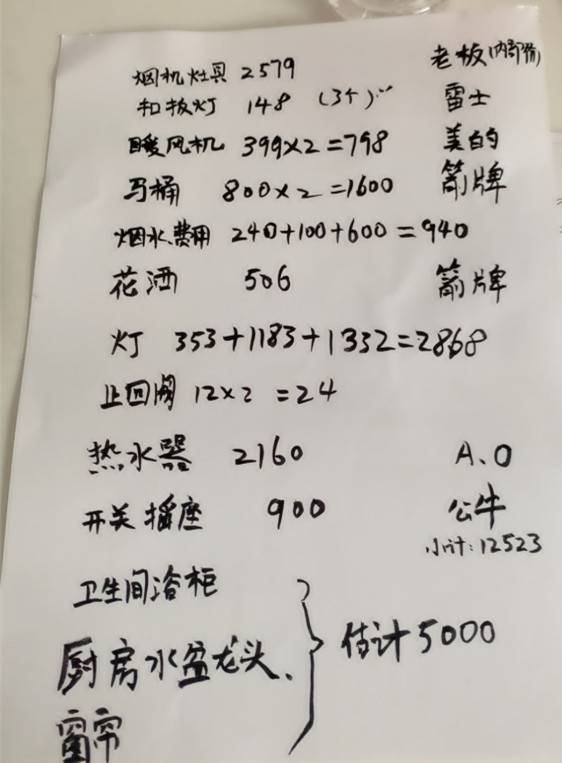 烟机灶具 2579 老板(内部价)
和板灯 148 (3个) 雷士
暖风机 399×2=798 美的
马桶 800×2=1600 箭牌
烟水费用 240+100+600=940
花洒 506 箭牌
灯 353+1183+1332=2868
止回阀 12×2=24
热水器 2160 A.O
开关插座 900 公牛
小计:12523
卫生间浴柜
厨房水盆龙头、 估计5000
窗帘